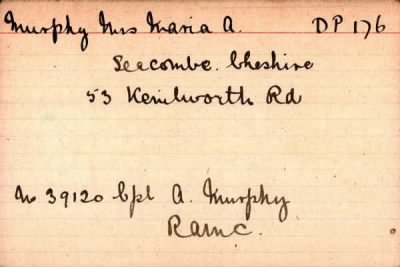 Murphy Mrs Maria A. DP 176
Seacombe. Cheshire
53 Kenilworth Rd
No 39120 Cpl A. Murphy
RAMC.